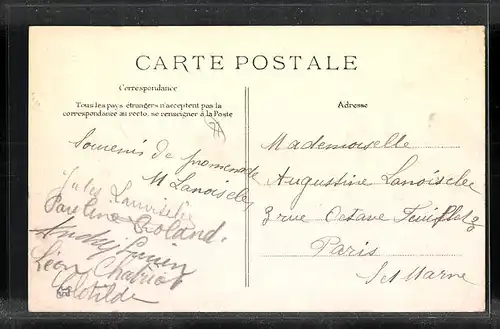 CARTE POSTALE
Correspondance
Tous les pays étrangers n'acceptent pas la
correspondance au recto. se renseigner à la Poste
Adresse
Souvenir de promenade
M Lanoiselée
Jules Lanoiselée
PaulineRoland.
Léon Chatriot
Clotilde
Mademoiselle
Augustine Lanoiselée
3 rue Octave Feuillet
Paris